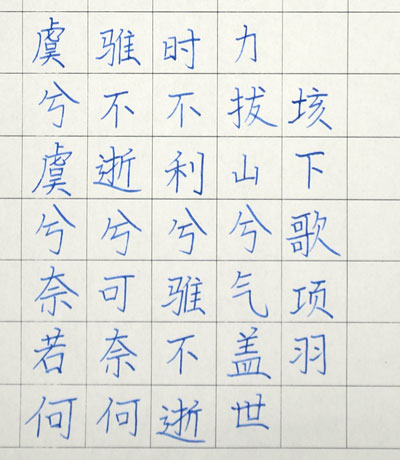 垓下歌项羽
力拔山兮气盖世
时不利兮骓不逝
骓不逝兮可奈何
虞兮虞兮奈若何